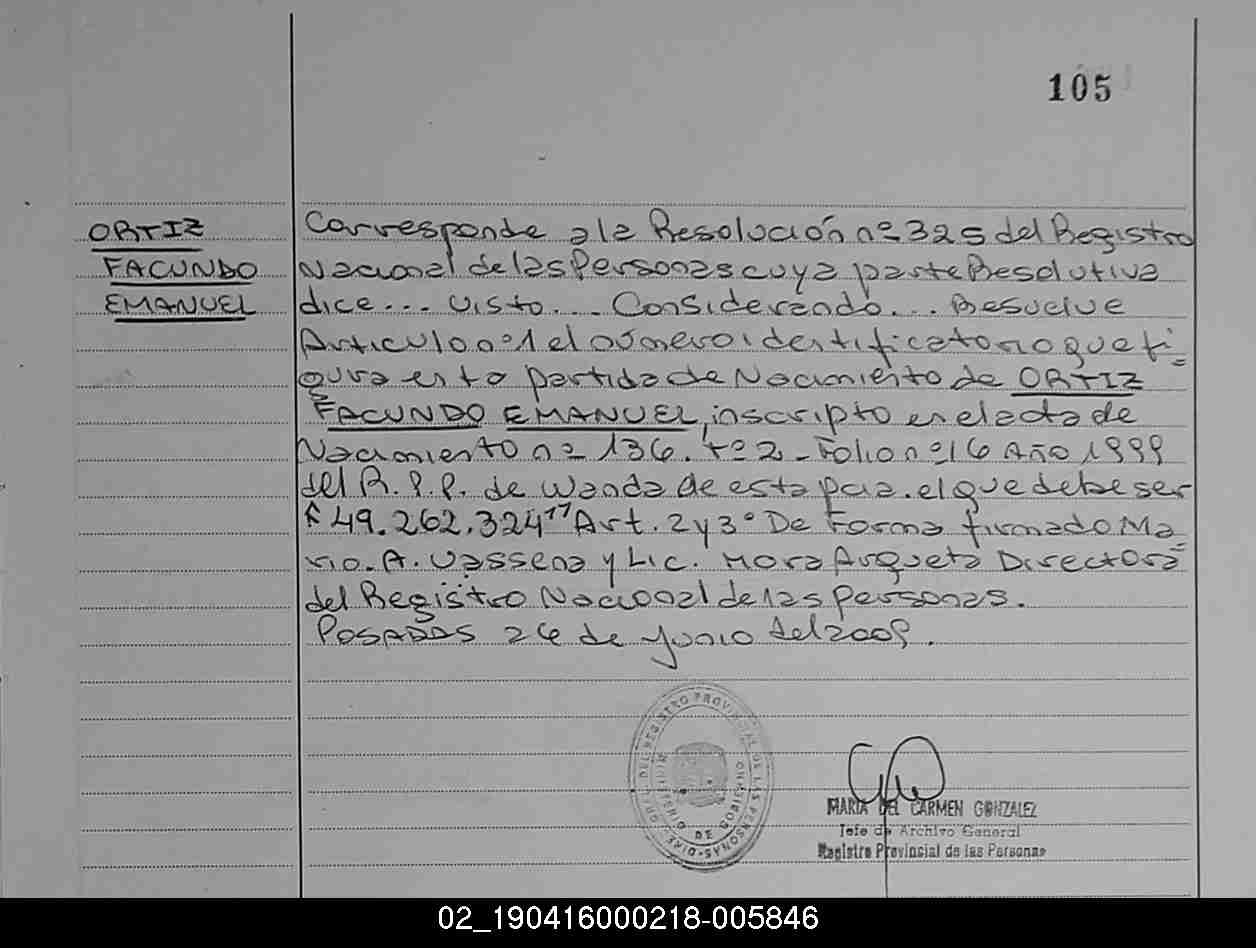 105
ORTIZ
FACUNDO
EMANUEL
Corresponde a la Resolución nº 325 del Registro
Nacional de las Personas cuya parte Resolutiva
dice... Visto... Considerando... Resuelve
Articulo nº 1 el número identificatorio que fi=
gura en la partida de Nacimiento de ORTIZ
FACUNDO EMANUEL, inscripto en el acta de
Nacimiento nº 136. tº 2 - Folio nº 16 Año 1999
del R.P.P. de Wanda de esta pcia. el que debe ser
"49.262.324" Art. 2 y 3º De Forma firmado Ma=
rio. A. Vassena y Lic. Mora Arqueta Directora
del Registro Nacional de las Personas.
POSADAS 26 de Junio del 2009.
DIRE. GRAL. DEL REGISTRO PROVINCIAL DE LAS PERSONAS
MINISTERIO DE GOBIERNO
MARIA DEL CARMEN GONZALEZ
Jefe de Archivo General
Registro Provincial de las Personas
02_190416000218-005846